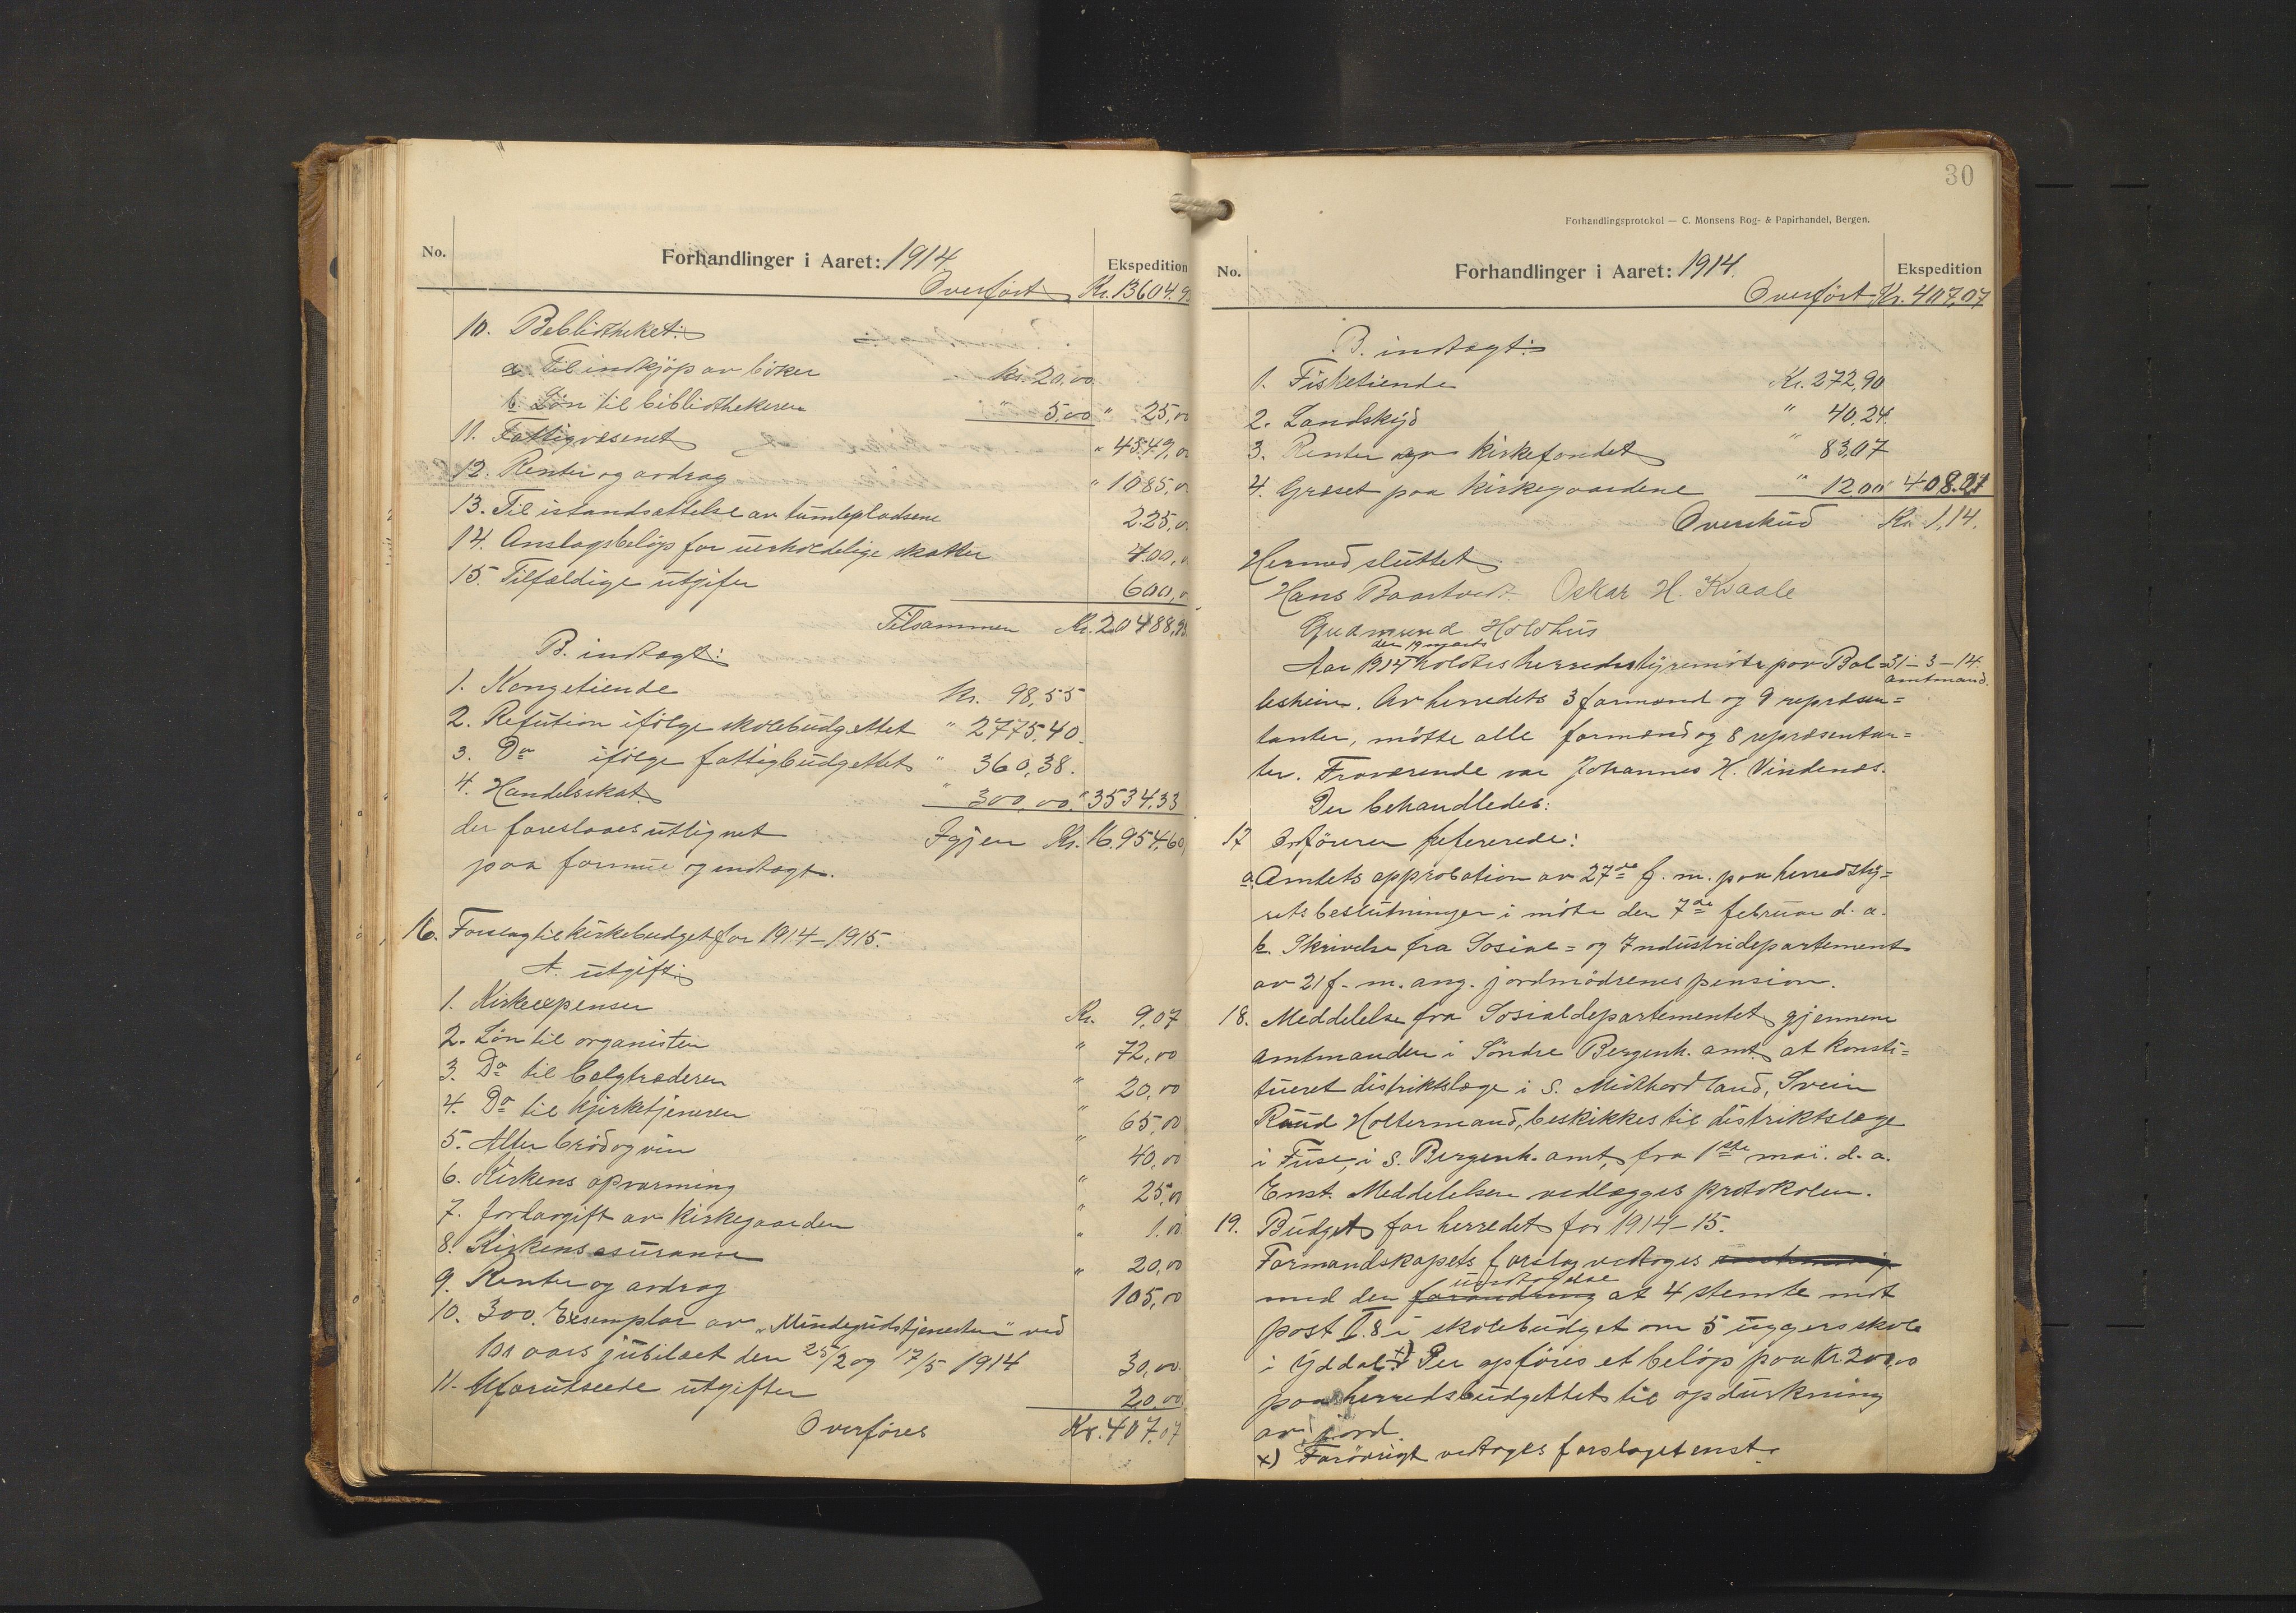 No.
Forhandlinger i Aaret: 1914
Ekspedition
Overført Kr. 13604.9
10. Bebliotheket:
a. Til indkjøp av bøker kr. 20,00
b. Løn til bibliothekeren " 5,00 " 25,00
11. Fattigvæsenet " 4549,0
12. Renter og avdrag " 1085,0
13. Til istandsættelse av tumlepladsene 225,0
14. Anslagsbeløp for uerholdelige skatter 400,0
15. Tilfældige utgifter 600,0
Tilsammen Kr. 20488,93
B. indtægt:
1. Kongetiende Kr. 98,55
2. Refution ifølge skolebudgettet " 2775,40
3. Do ifølge fattigbudgettet " 360,38.
4. Handelsskat " 300,00 " 3534,33
der foreslaaes utlignet Igjen Kr. 16.954,60
paa formue og indtægt.
16. Forslag til kirkebudget for 1914-1915.
A. utgift:
1. Kirkeexpenser Kr. 9,07
2. Løn til organisten " 72,00
3. Do til belgtræderen " 20,00
4. Do til kjirketjeneren " 65,00
5. Alter brød og vin " 40,00
6. Kirkens opvarming " 25,00
7. Jordavgift av kirkegaarden " 1.00
8. Kirkens asuranse " 20,00
9. Renter og avdrag 105,00
10. 300. Exsemplar av "Mindegudstjenesten" ved
100 aars jubilæet den 25/2 og 17/5 1914 30,00
11. Uforutseede utgifter 20,00
Overføres Kr. 407,07
30
Forhandlingsprotokol — C. Monsens Bog- & Papirhandel, Bergen.
No.
Forhandlinger i Aaret: 1914
Ekspedition
Overført Kr. 407,07
B. indtægt:
1. Fisketiende Kr. 272,90
2. Landskyd " 40,24
3. Renter av kirkefondet " 83,07
4. Græset paa kirkegaardene " 12,00 408.21
Overskud Kr. 1,14.
Hermed sluttet
Hans Baartvedt Oskar H. Kvaale
Gudmund Holdhus
den 19 marts
Aar 1914 holdtes herredsstyremøte paa Bal= 31-3-14.
amtmand.
lesheim. Av herredets 3 formænd og 9 repræsen=
tanter, møtte alle formænd og 8 repræsentan=
ter. Fraværende var Johannes H. Vindenes.
Der behandledes:
17 Ordføreren refererede:
a. Amtets approbation av 27de f. m. paa herredsty=
rets beslutninger i møte den 7de februar d. a.
b. Skrivelse fra Sosial= og Industridepartement
av 21 f. m. ang. jordmødrenes pension.
18. Meddelelse fra Sosialdepartementet gjennem
amtmanden i Søndre Bergenh. amt, at konsti=
tueret distriktslæge i S. Midthordland, Svein
Ruud Holtermand, beskikkes til distriktslæge
i Fuse, i S. Bergenh. amt, fra 1ste mai d. a.
Enst. Meddelelsen vedlægges protokolen.
19. Budget for herredet for 1914-15.
Formandskapets forslag vedtoges
undtagelse
med den forandring at 4 stemte mot
post II.8 i skolebudget om 5 uggers skole
i Yddal. x) Der opføres et beløp paa kr. 200,00
paa herredsbudgettet til opdurkning
av jord.
x) Forøvrigt vedtoges forslaget enst.